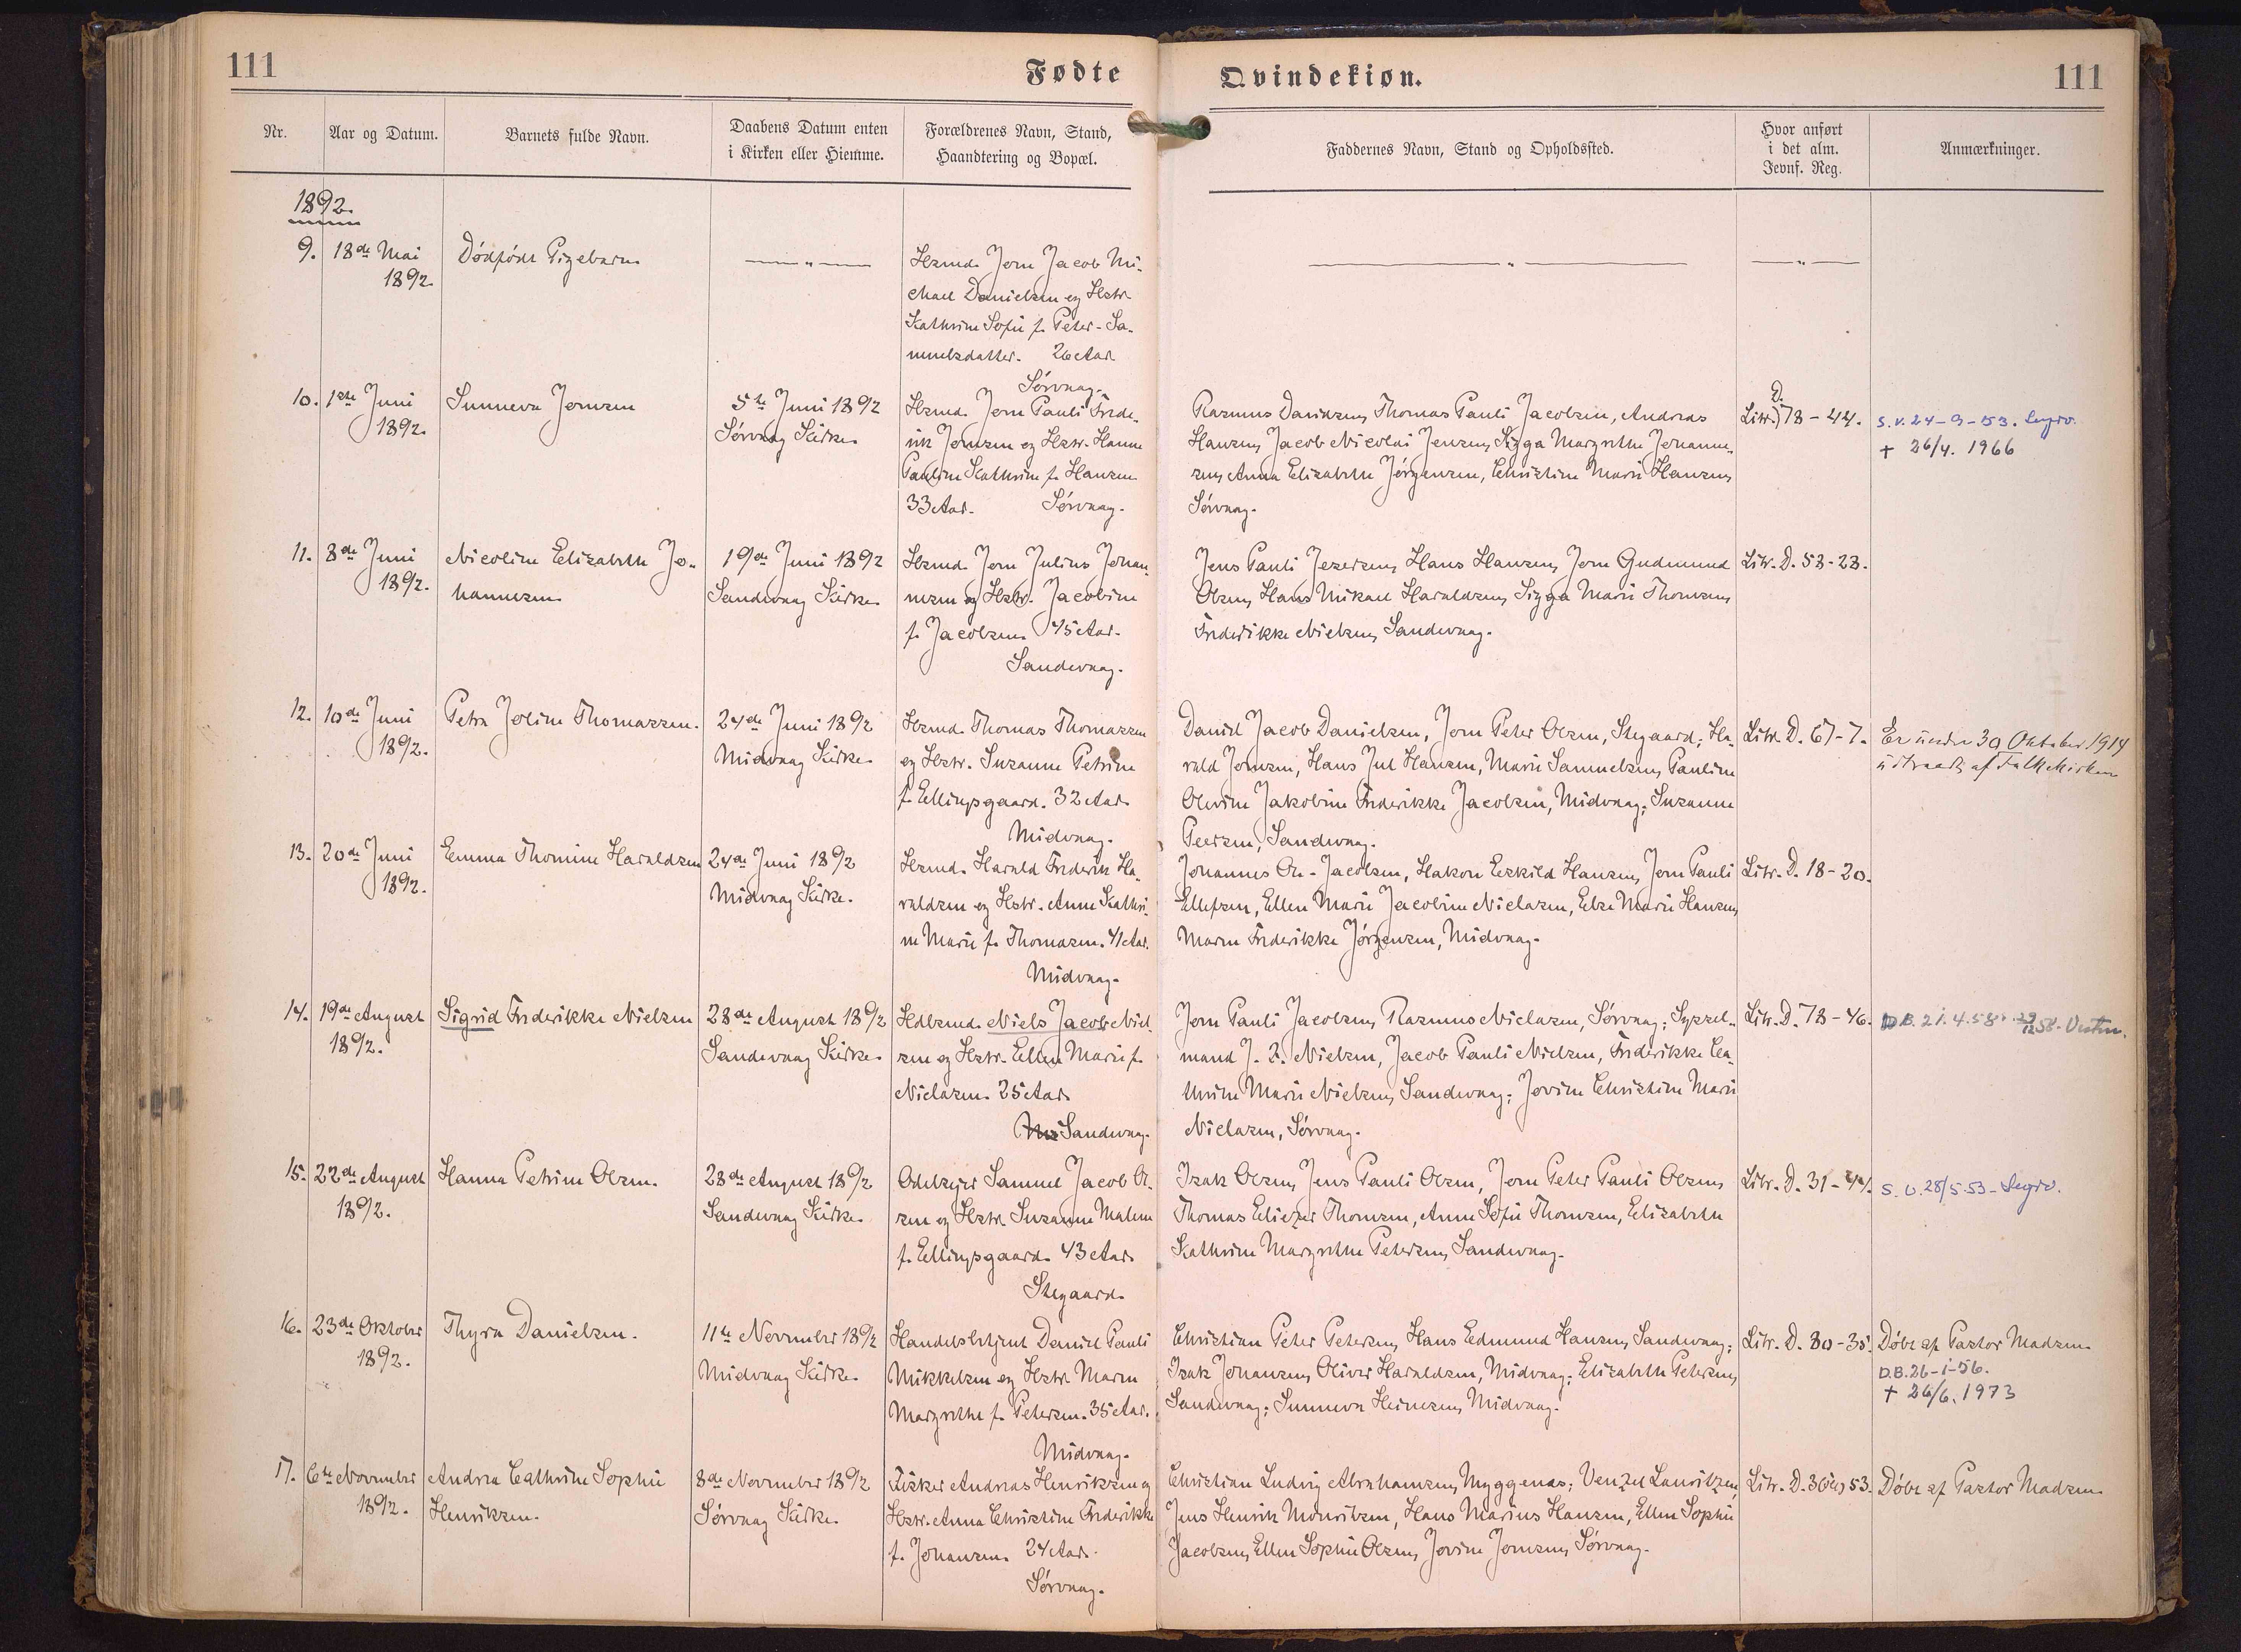 111
Fødte
Qvindekiøn.
111
Nr.
Aar og Datum.
Barnets fulde Navn.
Daabens Datum enten
i Kirken eller Hiemme.
Forældrenes Navn, Stand,
Haandtering og Bopæl.
Faddernes Navn, Stand og Opholdssted.
Hvor anført
i det alm.
Jevnf. Reg.
Anmærkninger.
1892.
9.
18de Mai
1892.
Dødfødt Pigebarn
—— " ——
Hsmd. Joen Jacob Mi-
chael Danielsen og Hstr.
Kathrine Sofie f. Peter-Sa-
muelsdatter. 26 Aar
Sørvaag.
—— " ——
—— " ——
10.
1ste Juni
1892.
Sunneva Joensen
5te Juni 1892
Sørvaag Kirke.
Hsmd. Joen Pauli Frede-
rik Joensen og Hstr. Hanne
Pauline Kathrine f. Hansen
33 Aar. Sørvaag.
Rasmus Davidsen, Thomas Pauli Jacobsen, Andreas
Hansen, Jacob Nicolai Jensen, Sigga Margrethe Johanne-
sen, Anna Elisabeth Jørgensen, Christine Marie Hansen,
Sørvaag.
D.
Litr. 78-44.
S.V. 24-9-53.
+ 26/4. 1966
11.
8de Juni
1892.
Nicoline Elisabeth Jo-
hannesen
19de Juni 1892
Sandevaag Kirke.
Hsmd. Joen Julius Johan-
nesen og Hstr. Jacobine
f. Jacobsen 45 Aar.
Sandevaag.
Jens Pauli Jesersen, Hans Hansen, Joen Gudmund
Olsen, Hans Mikael Haraldsen, Sigga Marie Thomsen,
Frederikke Nielsen, Sandevaag.
Litr. D. 53-23.
12.
10de Juni
1892.
Petra Joline Thomassen.
24de Juni 1892
Midvaag Kirke.
Hsmd. Thomas Thomassen
og Hstr. Susanne Petrine
f. Ellingsgaard. 32 Aar
Midvaag.
Daniel Jacob Danielsen, Joen Peter Olsen, Stegaard; Ha-
rald Joensen, Hans Jul Hansen, Marie Samuelsen, Pauline
Olevine Jakobine Frederikke Jacobsen, Midvaag; Susanne
Peersen, Sandevaag.
Litr. D. 67-7.
Er under 30 Oktober 1914
udtraadt af Folkekirken
13.
20de Juni
1892.
Emma Thomine Haraldsen
24de Juni 1892
Midvaag Kirke.
Hsmd. Harald Frederik Ha-
raldsen og Hstr. Anne Kathri-
ne Marie f. Thomasen. 41 Aar.
Midvaag.
Johannes Chr. Jacobsen, Hakon Eskild Hansen, Joen Pauli
Ellefsen, Ellen Marie Jacobine Niclasen, Else Marie Hansen,
Maren Frederikke Jørgensen, Midvaag.
Litr. D. 18-20.
14.
19de August
1892.
Sigrid Frederikke Nielsen
28de August 1892
Sandevaag Kirke.
Hdlsmd. Niels Jacob Niel-
sen og Hstr. Ellen Marie f.
Niclasen. 25 Aar
Sandevaag.
Joen Pauli Jacobsen, Rasmus Niclasen, Sørvaag; Syssel-
mand J. Nielsen, Jacob Pauli Nielsen, Frederikke Ca-
thrine Marie Nielsen, Sandevaag; Jovine Christine Marie
Niclasen, Sørvaag.
Litr. D. 78-46.
D.B. 21.4.58
15.
22de August
1892.
Hanna Petrine Olsen.
28de August 1892
Sandevaag Kirke.
Odelsejer Samuel Jacob Ol-
sen og Hstr. Susanne Malene
f. Ellingsgaard. 43 Aar.
Stegaard.
Isak Olsen, Jens Pauli Olsen, Joen Peter Pauli Olsen,
Thomas Elieser Thomsen, Anne Sofie Thomsen, Elisabeth
Kathrine Margrethe Petersen, Sandevaag.
Litr. D. 31-44.
S.V. 28/5 53
16.
23de Oktober
1892.
Thyra Danielsen.
11te November 1892
Midvaag Kirke.
Handelsbetjent Daniel Pauli
Mikkelsen og Hstr. Maren
Margrethe f. Petersen. 35 Aar.
Midvaag.
Christian Peter Petersen, Hans Edmund Hansen, Sandevaag;
Isak Johansen, Oliver Haraldsen, Midvaag; Elisabeth Petersen,
Sandevaag; Sunneva Heinesen, Midvaag.
Litr. D. 80-35.
Døbt af Pastor Madsen
D.B. 26-1-56.
+ 26/6. 1973
17.
6te November
1892.
Andrea Cathrine Sophie
Henriksen.
8de November 1892
Sørvaag Kirke.
Fisker Andreas Henriksen og
Hstr. Anna Christine Frederikke
f. Johansen. 24 Aar.
Sørvaag.
Christian Ludvig Abrahamsen, Myggenæs; Venzel Lauritzen,
Jens Henrik Mouritsen, Hans Marius Hansen, Ellen Sophie
Jacobsen, Ellen Sophie Olsen, Jovine Joensen, Sørvaag.
Litr. D. 36 53.
Døbt af Pastor Madsen